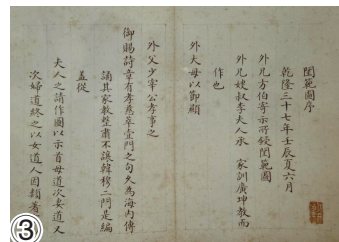 閨範圖序
乾隆三十七年壬辰夏六月
外兄方伯寄示所鐫閨範圖
外兄嫂叔李夫人承 家訓廣坤教而
作也
外大母以節顯
外父少宰公孝事之
御賜詩章有孝慈萃壹門之句久為海內傳
誦其家教整肅不讓韓穆二門是編
蓋從
夫人之請作圖以示首母道次妻道又
次婦道終之以女道人因類著
③